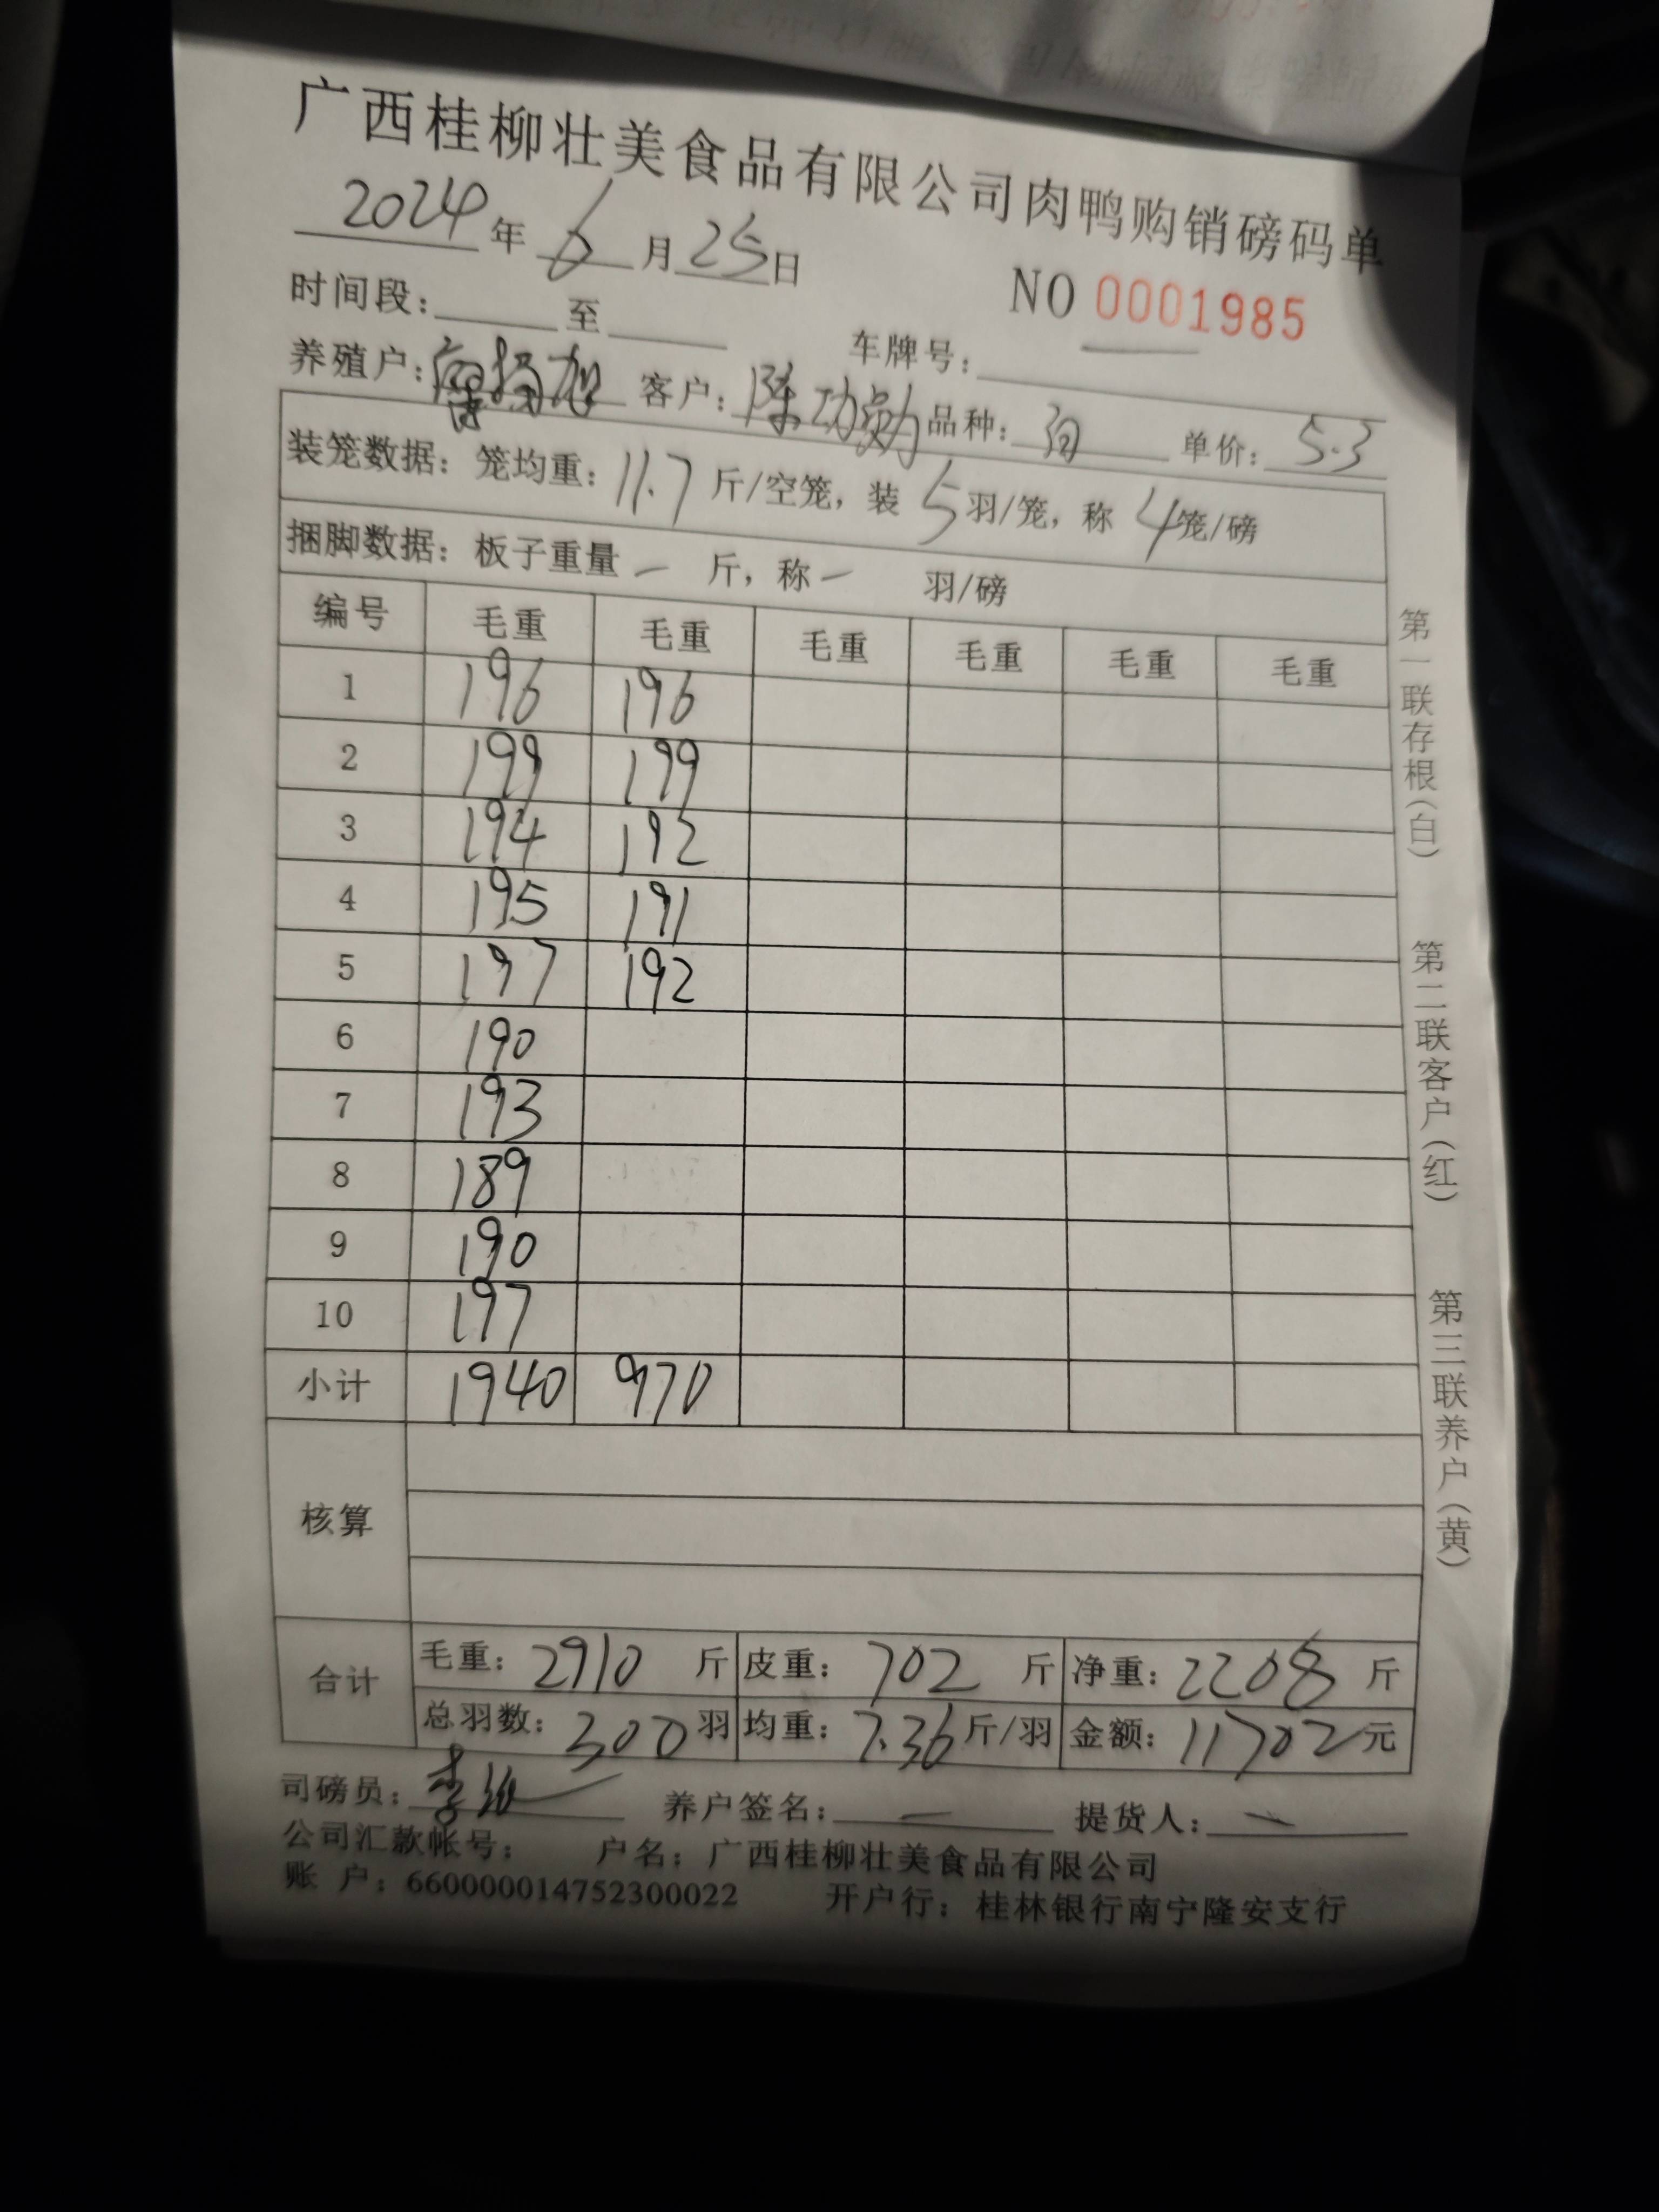 广西桂柳壮美食品有限公司肉鸭购销磅码单
2024年6月25日
NO 0001985
时间段：至
车牌号：
养殖户： 客户：陈功勋 品种： 单价：5.3
装笼数据：笼均重：11.7斤/空笼，装5羽/笼，称4笼/磅
捆脚数据：板子重量 一 斤，称 一 羽/磅
编号 毛重 毛重 毛重 毛重 毛重 毛重
1 196 196
2 199 199
3 194 192
4 195 191
5 197 192
6 190
7 193
8 189
9 190
10 197
小计 1940 970
核算
合计 毛重：2910 斤 皮重：702 斤 净重：2208 斤
总羽数：300羽 均重：7.36斤/羽 金额：11702元
司磅员：李 养户签名：一 提货人：一
公司汇款帐号： 户名：广西桂柳壮美食品有限公司
账 户：660000014752300022 开户行：桂林银行南宁隆安支行
第一联存根（白）
第二联客户（红）
第三联养户（黄）